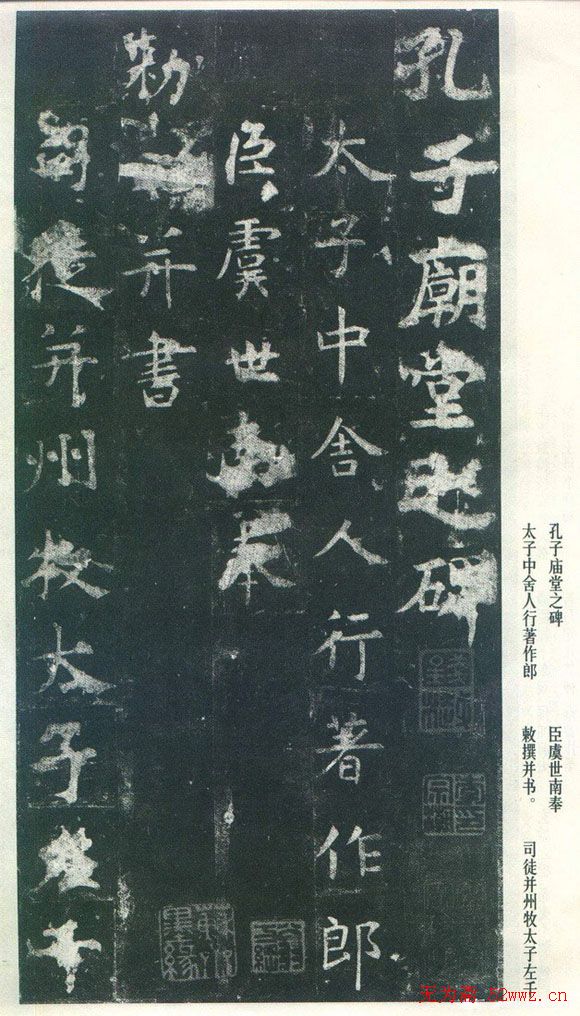 孔子廟堂之碑
太子中舍人行著作郎
臣虞世南奉
勑撰并書
司徒并州牧太子左千
孔子庙堂之碑
太子中舍人行著作郎
臣虞世南奉
敕撰并书。
司徒并州牧太子左千
52wwz.cn